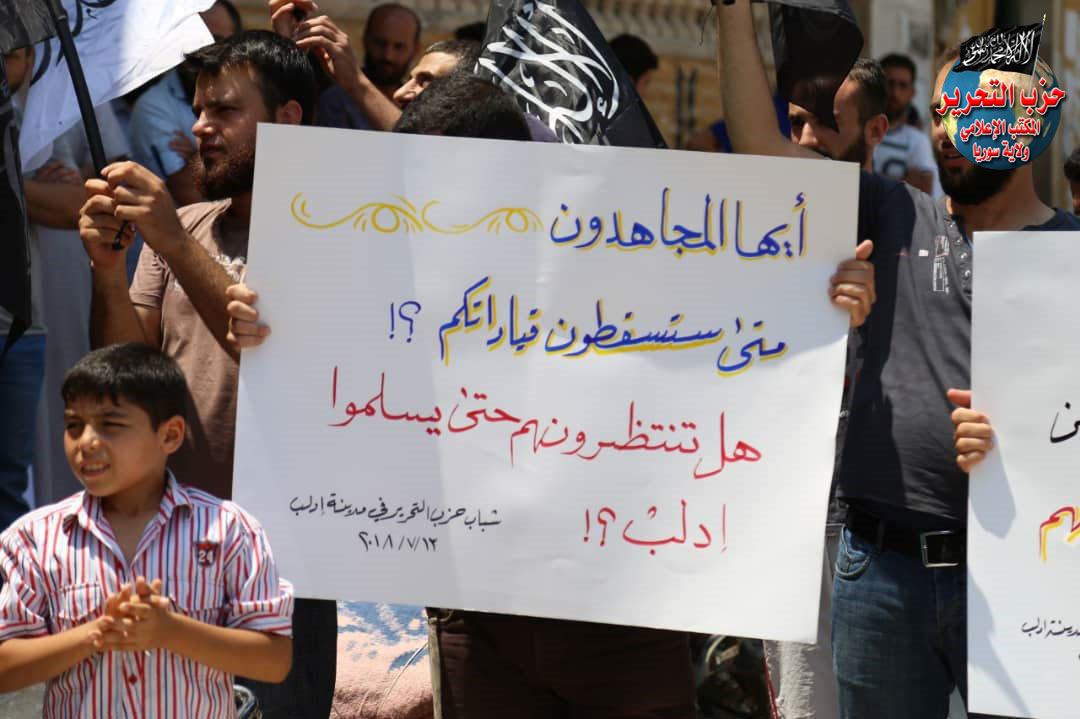 أيها المجاهدون
متى ستسقطون قياداتكم ؟!
هل تنتظرونهم حتى يسلموا
إدلب ؟!
شباب حزب التحرير في مدينة إدلب
٢٠١٨/٧/١٣
حزب التحرير
المكتب الإعلامي
ولاية سوريا
24